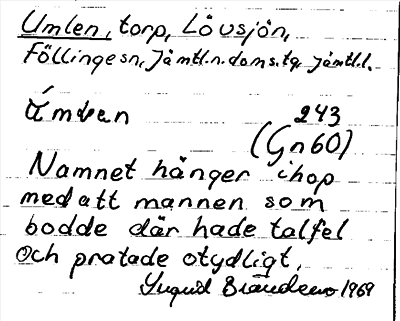 Umlen, torp, Lövsjön,
Föllinge sn, Jämtl. n. doms.tg, Jämtl.l.
243
(Gn 60)
Namnet hänger ihop
med att mannen som
bodde där hade talfel
och pratade otydligt.
1969